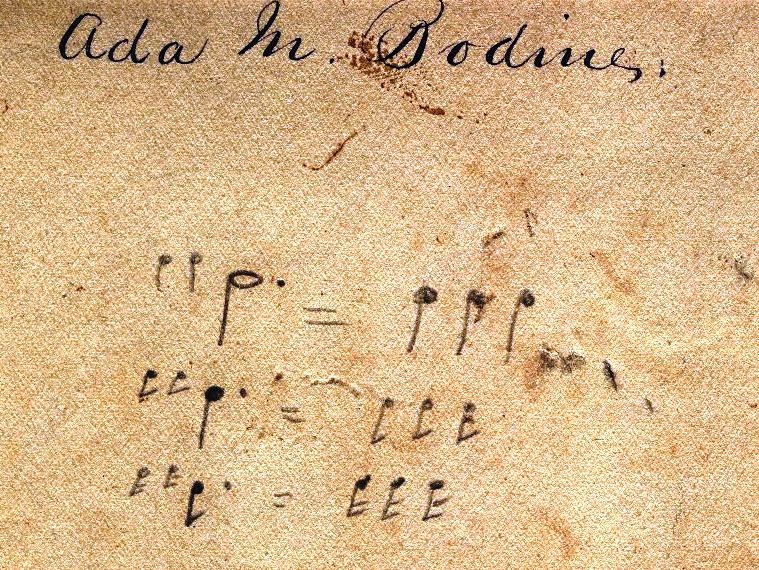 Ada M. Bodine.
=
=
=